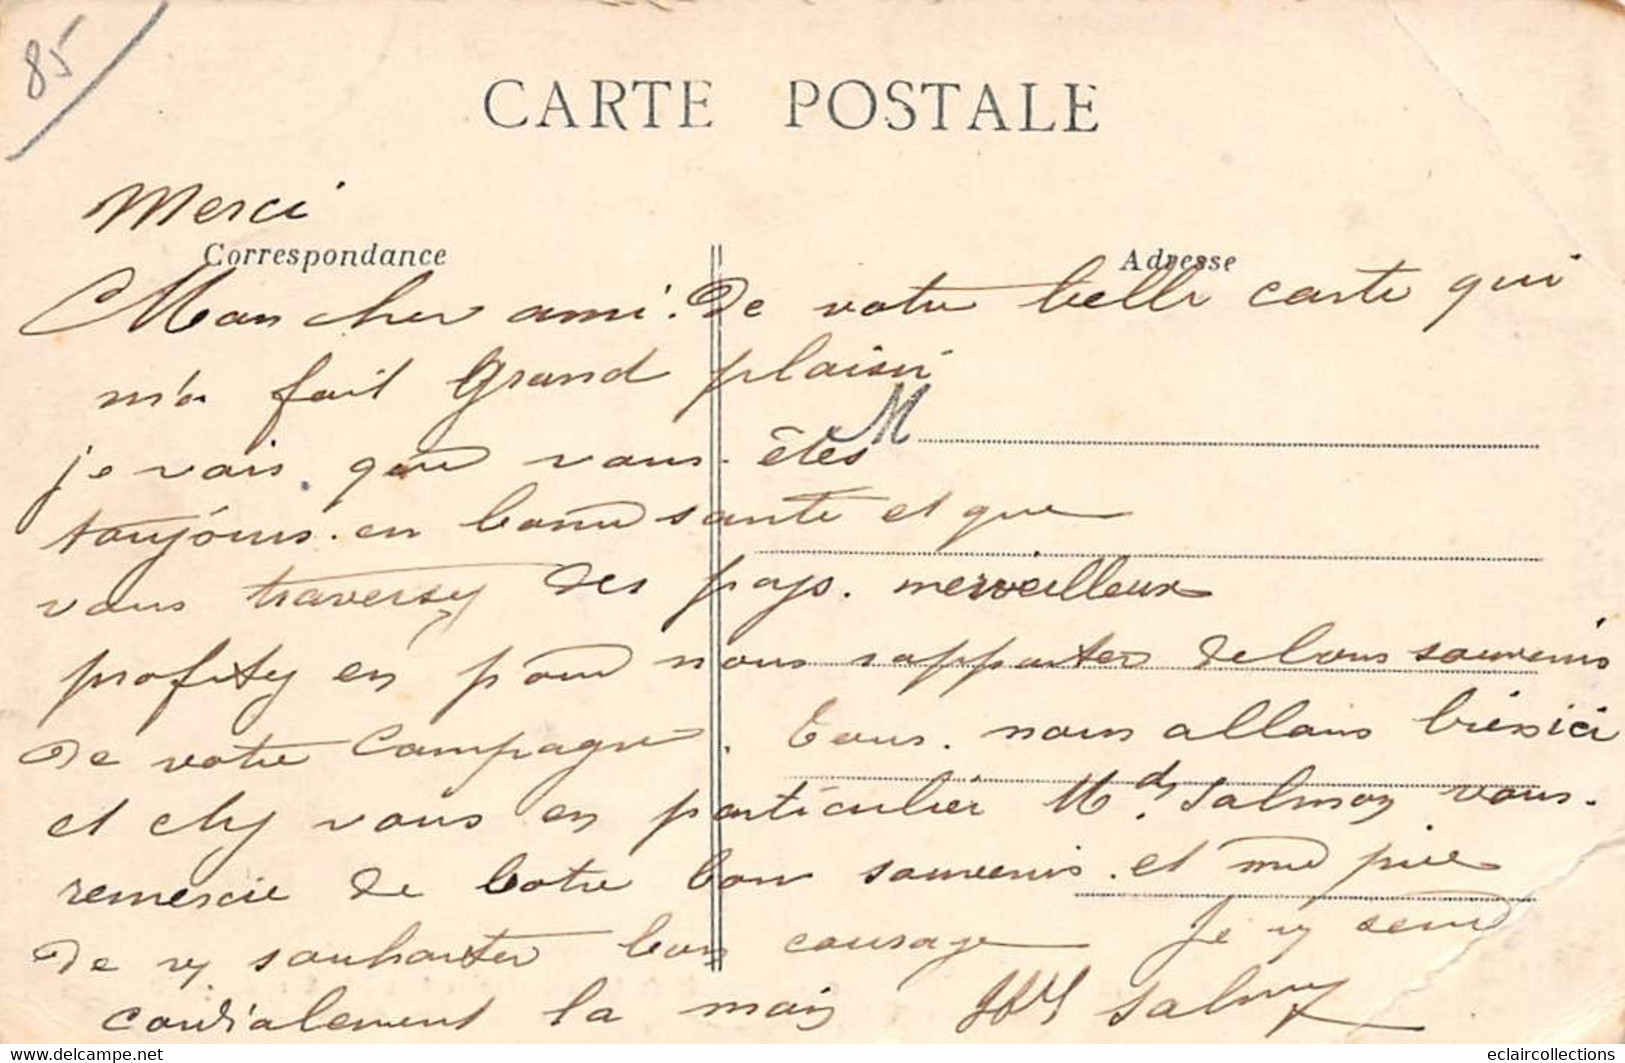 85
CARTE POSTALE
Merci
Correspondance
Adresse
Mon cher ami. De votre belle carte qui
m'a fait Grand plaisir
M
je vois que vous êtes
toujours en bonne santé et que
vous traversez des pays merveilleux
profitez en pour nous rapporter de bons souvenirs
de votre Campagne. Tous nous allons bien ici
et chez vous en particulier Md Salmon vous
remercie de votre bon souvenir et me prie
de vs souhaiter bon courage Je vs serre
cordialement la main Salmon
eclaircollections
https://www.delcampe.net